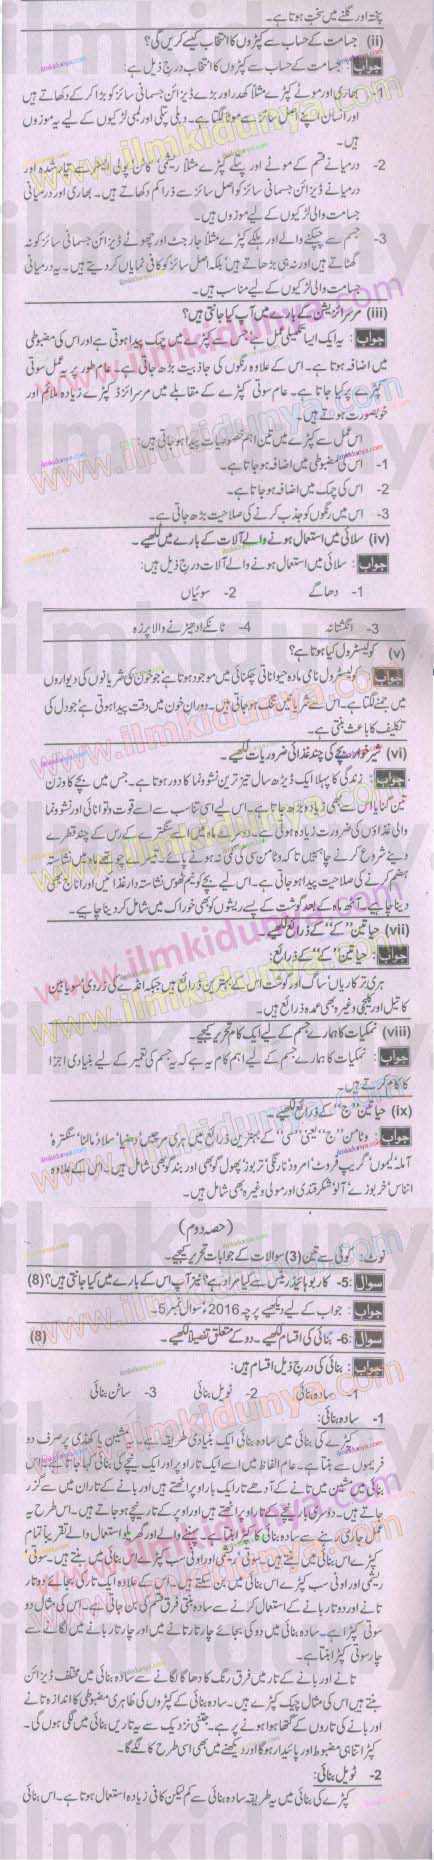 پختہ اور گلنے میں سخت ہوتا ہے۔
(ii) جسامت کے حساب سے کپڑوں کا انتخاب کیسے کریں گی؟
جواب : جسامت کے حساب سے کپڑوں کا انتخاب درج ذیل ہے:
1- بھاری اور موٹے کپڑے مثلاً کھدر اور بڑے ڈیزائن جسمانی سائز کو بڑا کر کے دکھاتے ہیں
اور انسان اپنے اصل سائز سے موٹا لگتا ہے۔ دبلی پتلی اور لمبی لڑکیوں کے لیے یہ موزوں
ہیں۔
2- درمیانے قسم کے موٹے اور پتلے کپڑے مثلاً ریشمی کاٹن پولی ایسٹر سے تیار شدہ اور
درمیانے ڈیزائن جسمانی سائز کو اصل سائز سے ذرا کم دکھاتے ہیں۔ بھاری اور درمیانی
جسامت والی لڑکیوں کے لیے موزوں ہیں۔
3- جسم سے چپکنے والے اور ہلکے کپڑے مثلاً جارجٹ اور چھوٹے ڈیزائن جسمانی سائز کو نہ
گھٹاتے ہیں اور نہ ہی بڑھاتے ہیں بلکہ اصل سائز کو کافی نمایاں کر دیتے ہیں۔ یہ درمیانی
جسامت والی لڑکیوں کے لیے مناسب ہیں۔
(iii) مرسرائزیشن کے بارے میں آپ کیا جانتی ہیں؟
جواب : یہ ایک ایسا تکمیلی عمل ہے جس سے کپڑے میں چمک پیدا ہوتی ہے اور اس کی مضبوطی
میں اضافہ ہوتا ہے۔ اس کے علاوہ رنگوں کی جاذبیت بڑھ جاتی ہے۔ عام طور پر یہ عمل سوتی
کپڑے پر کیا جاتا ہے۔ عام سوتی کپڑے کے مقابلے میں مرسرائزڈ کپڑے زیادہ ملائم اور
خوبصورت ہوتے ہیں۔
اس عمل سے کپڑے میں تین اہم خصوصیات پیدا ہو جاتی ہیں:
1- اس کی مضبوطی میں اضافہ ہو جاتا ہے۔
2- اس کی چمک میں اضافہ ہو جاتا ہے۔
3- اس میں رنگوں کو جذب کرنے کی صلاحیت بڑھ جاتی ہے۔
(iv) سلائی میں استعمال ہونے والے آلات کے بارے میں لکھیے۔
جواب : سلائی میں استعمال ہونے والے آلات درج ذیل ہیں:
1- دھاگے 2- سوئیاں
3- انگشتانہ 4- ٹانکے ادھیڑنے والا پرزہ
(v) کولیسٹرول کیا ہوتا ہے؟
جواب : کولیسٹرول نامی مادہ حیواناتی چکنائی میں موجود ہوتا ہے جو خون کی شریانوں کی دیواروں
میں جمنے لگتا ہے۔ اس سے شریانیں تنگ ہو جاتی ہیں۔ دوران خون میں دقت پیدا ہوتی ہے جو دل کی
تکلیف کا باعث بنتی ہے۔
(vi) شیر خوار بچے کی چند غذائی ضروریات لکھیے۔
جواب : زندگی کا پہلا ایک ڈیڑھ سال تیز ترین نشوونما کا دور ہوتا ہے۔ جس میں بچے کا وزن
تین گنا یا اس سے بھی زیادہ بڑھ جاتا ہے۔ اس لیے اسی تناسب سے اسے قوت و توانائی اور نشوونما
والی غذاؤں کی ضرورت زیادہ ہوتی ہے۔ دوسرے ماہ میں اسے سنگترے کے رس کے چند قطرے
دینے شروع کرنے چاہئیں تاکہ وٹامن سی کی کمی نہ ہونے پائے۔ تیسرے چوتھے ماہ میں نشاستہ
ہضم کرنے کی صلاحیت پیدا ہو جاتی ہے۔ اس لیے بچے کو نیم ٹھوس نشاستہ دار غذائیں اور اناج بھی
دینا چاہیے۔ آٹھ ماہ کے بعد گوشت کے پسے ریشوں کو بھی خوراک میں شامل کر دینا چاہیے۔
(vii) حیاتین ''کے'' کے ذرائع لکھیے۔
جواب : حیاتین ''کے'' کے ذرائع:
ہری ترکاریاں' ساگ اور گوشت اس کے بہترین ذرائع ہیں جبکہ انڈے کی زردی' سویابین
کا تیل اور کلیجی وغیرہ بھی عمدہ ذرائع ہیں۔
(viii) نمکیات کا ہمارے جسم کے لیے ایک کام تحریر کیجیے۔
جواب : نمکیات کا ہمارے جسم کے لیے اہم کام یہ ہے کہ یہ جسم کی تعمیر کے لیے بنیادی اجزا
کا کام کرتے ہیں۔
(ix) حیاتین ''ج'' کے ذرائع لکھیے۔
جواب : وٹامن ''ج'' یعنی ''سی'' کے بہترین ذرائع میں ہری مرچیں' دھنیا' سلاد' مالٹا' سنگترہ'
آملہ' لیموں' گریپ فروٹ' امرود' نارنگی' تربوز' پھول گوبھی اور بند گوبھی شامل ہیں۔ اس کے علاوہ
انناس' خربوزے' آلو' شکرقندی اور مولی وغیرہ بھی شامل ہیں۔
(حصہ دوم)
نوٹ: کوئی سے تین (3) سوالات کے جوابات تحریر کیجیے۔
سوال 5- کاربوہائیڈریٹس سے کیا مراد ہے؟ نیز آپ اس کے بارے میں کیا جانتی ہیں؟ (8)
جواب : جواب کے لیے دیکھیے پرچہ 2016ء سوال نمبر 5۔
سوال 6- بنائی کی اقسام لکھیے۔ دو کے متعلق تفصیلاً لکھیے۔ (8)
جواب : بنائی کی درج ذیل اقسام ہیں:
1- سادہ بنائی 2- ٹویل بنائی 3- ساٹن بنائی
1- سادہ بنائی:
کپڑے کی بنائی میں سادہ بنائی ایک بنیادی طریقہ ہے۔ یہ مشین یا کھڈی پر صرف دو
فریموں سے بنتا ہے۔ عام الفاظ میں اسے ایک تار اوپر اور ایک نیچے کی بنائی کہا جاتا ہے۔ اس
بنائی میں مشین میں تانے کے آدھے تار ایک بار اوپر اٹھتے ہیں اور بانے کے تار ان میں سے گزر
جاتے ہیں۔ دوسری بار نیچے کے تار اوپر اٹھتے ہیں اور اوپر کے تار نیچے ہو جاتے ہیں۔ اس طرح یہ
عمل جاری رہنے سے سادہ بنائی کا کپڑا بنتا جاتا ہے۔ پہننے والے اور گھریلو استعمال والے تقریباً تمام
کپڑے اس بنائی میں بنتے ہیں۔ سوتی' ریشمی اور اونی سب کپڑے اس بنائی میں بنتے ہیں۔ سوتی'
ریشمی اور اونی سب کپڑے اس بنائی میں بن سکتے ہیں۔ اس کے علاوہ ایک تار کی بجائے دو تار
تانے اور دو تار بانے کے استعمال کرنے سے سادہ بنتی فرق قسم کی بن جاتی ہے۔ اس کی مثال دو
سوتی کپڑا ہے۔ سادہ بنائی میں دو کی بجائے چار تار تانے میں اور چار تار بانے میں لگانے سے
چار سوتی کپڑا بنتا ہے۔
تانے اور بانے کے تار میں فرق رنگ کا دھاگا لگانے سے سادہ بنائی میں مختلف ڈیزائن
بنتے ہیں اس کی مثال چیک کپڑے ہیں۔ سادہ بنائی کے کپڑوں کی ظاہری مضبوطی کا اندازہ تانے
اور بانے کی تاروں کے گتھا ہوا ہونے پر ہے۔ جتنی نزدیک سے یہ تاریں بنائی میں لگی ہوں گی۔
کپڑا اتنا ہی مضبوط اور پائیدار ہوگا اور دیکھنے میں بھی اسی طرح کا لگے گا۔
2- ٹویل بنائی:
کپڑے کی بنائی میں یہ طریقہ سادہ بنائی سے کم لیکن کافی زیادہ استعمال ہوتا ہے۔ اس بنائی